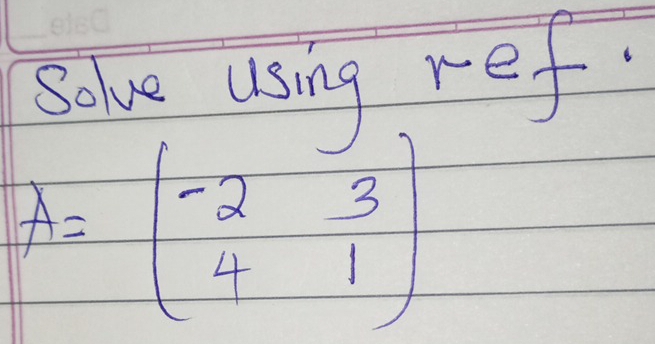 Date
Solve using ref.
A= (-2 3
4 1)